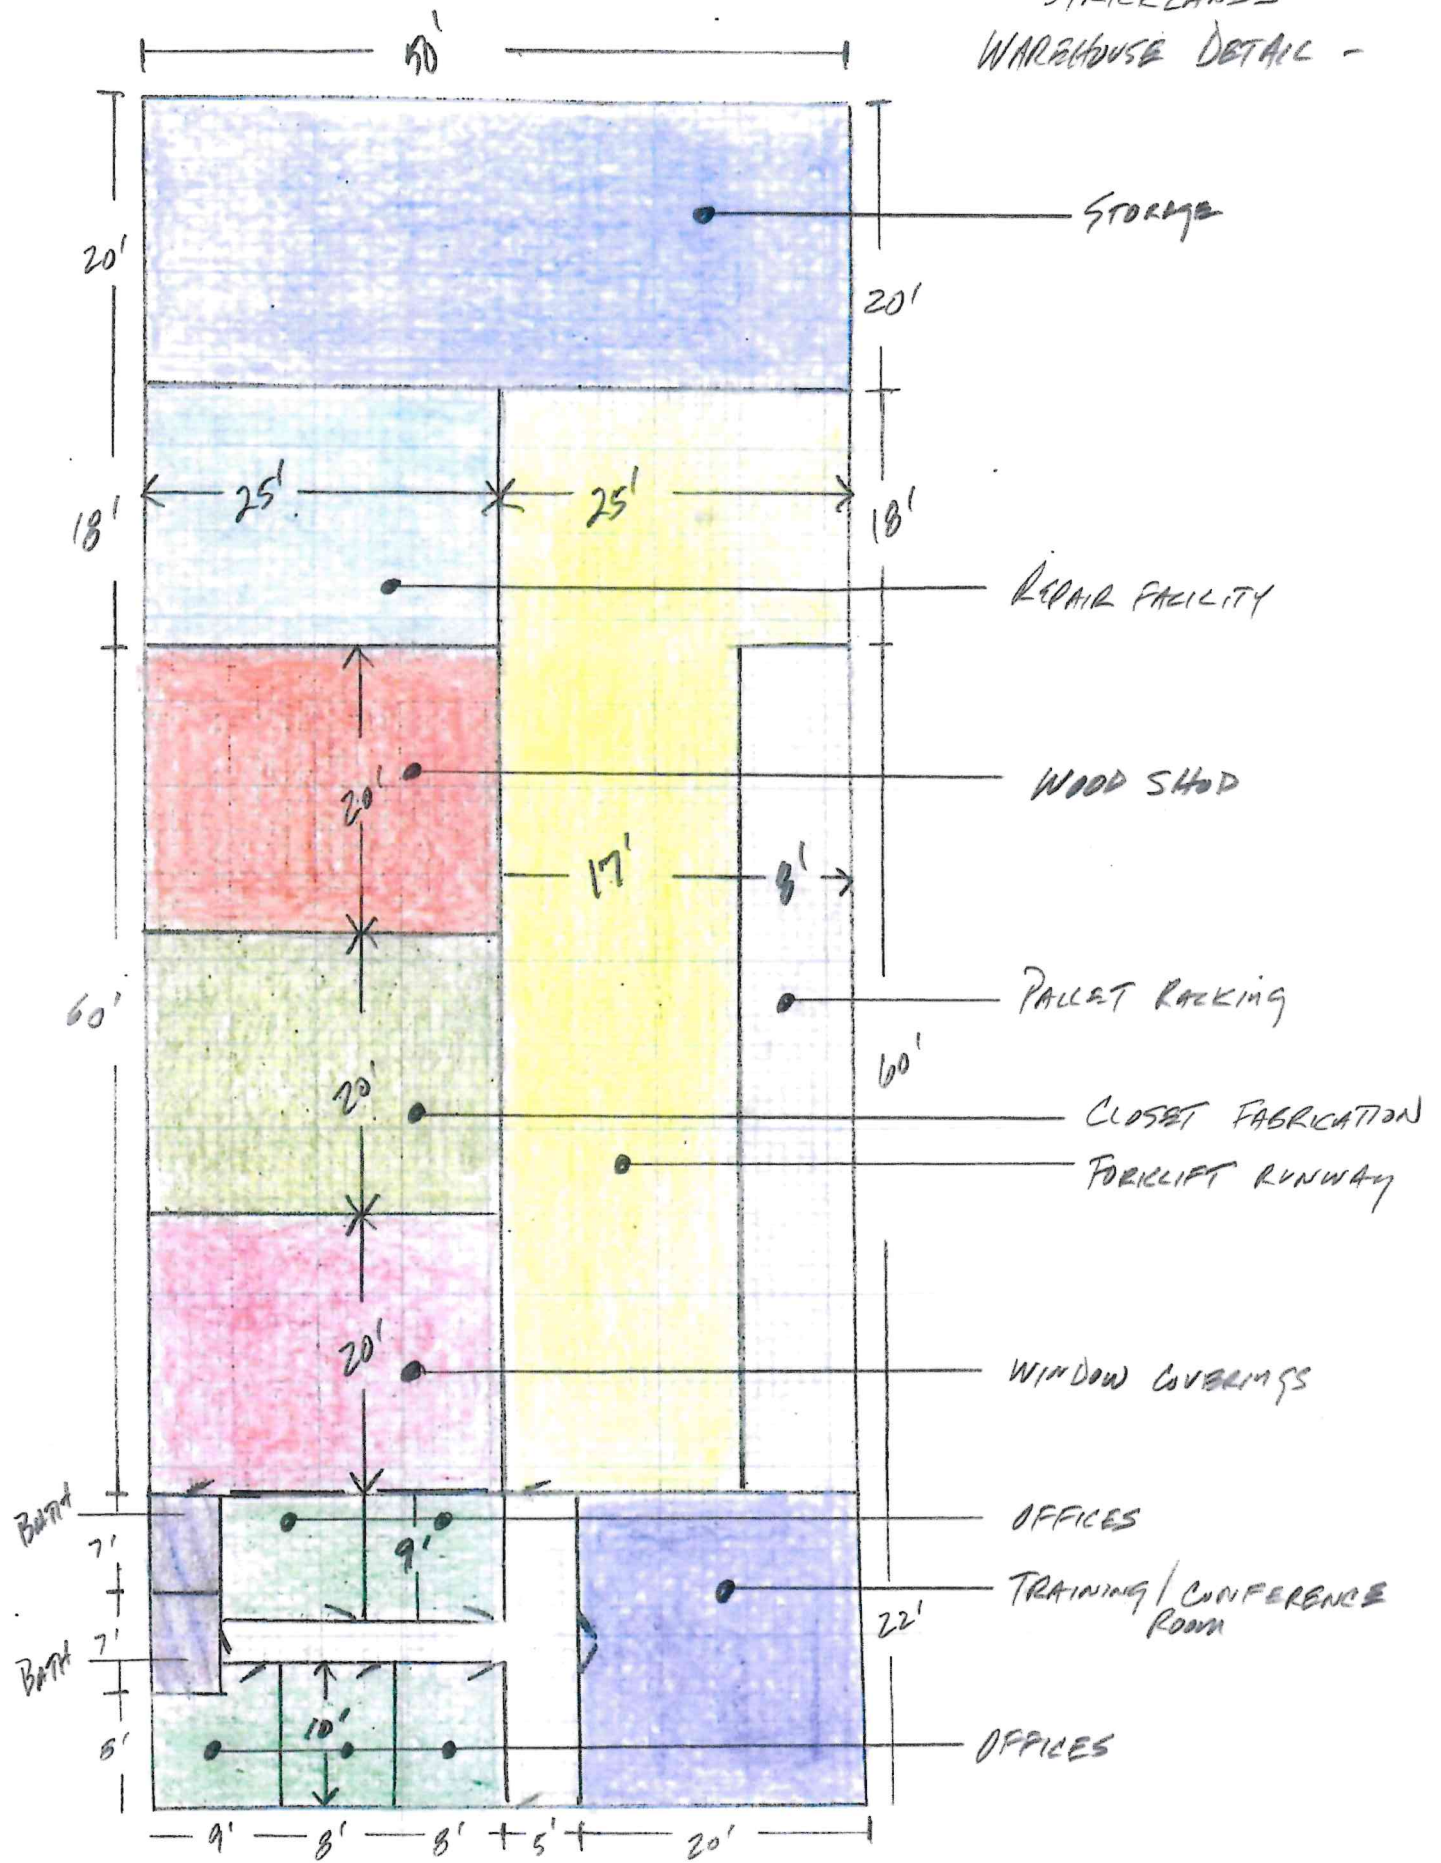 WAREHOUSE DETAIL -
50'
20'
STORAGE
20'
25'
25'
18'
18'
REPAIR FACILITY
20'
WOOD SHOP
17'
8'
60'
PALLET RACKING
20'
60'
CLOSET FABRICATION
FORKLIFT RUNWAY
20'
WINDOW COVERINGS
BATH
OFFICES
7'
9'
TRAINING/CONFERENCE
ROOM
22'
7'
BATH
10'
8'
OFFICES
9'
8'
8'
5'
20'